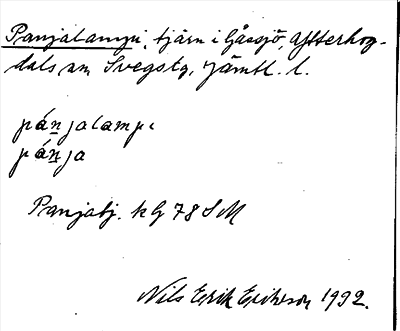 Panjalampi, tjärn i Gåssjö, Ytterhog-
dals sn Svegs tg, Jämtl. l.
pánjalampi
pánja
Panjabj. kG 78 SM
Nils Erik Erikson 1992.